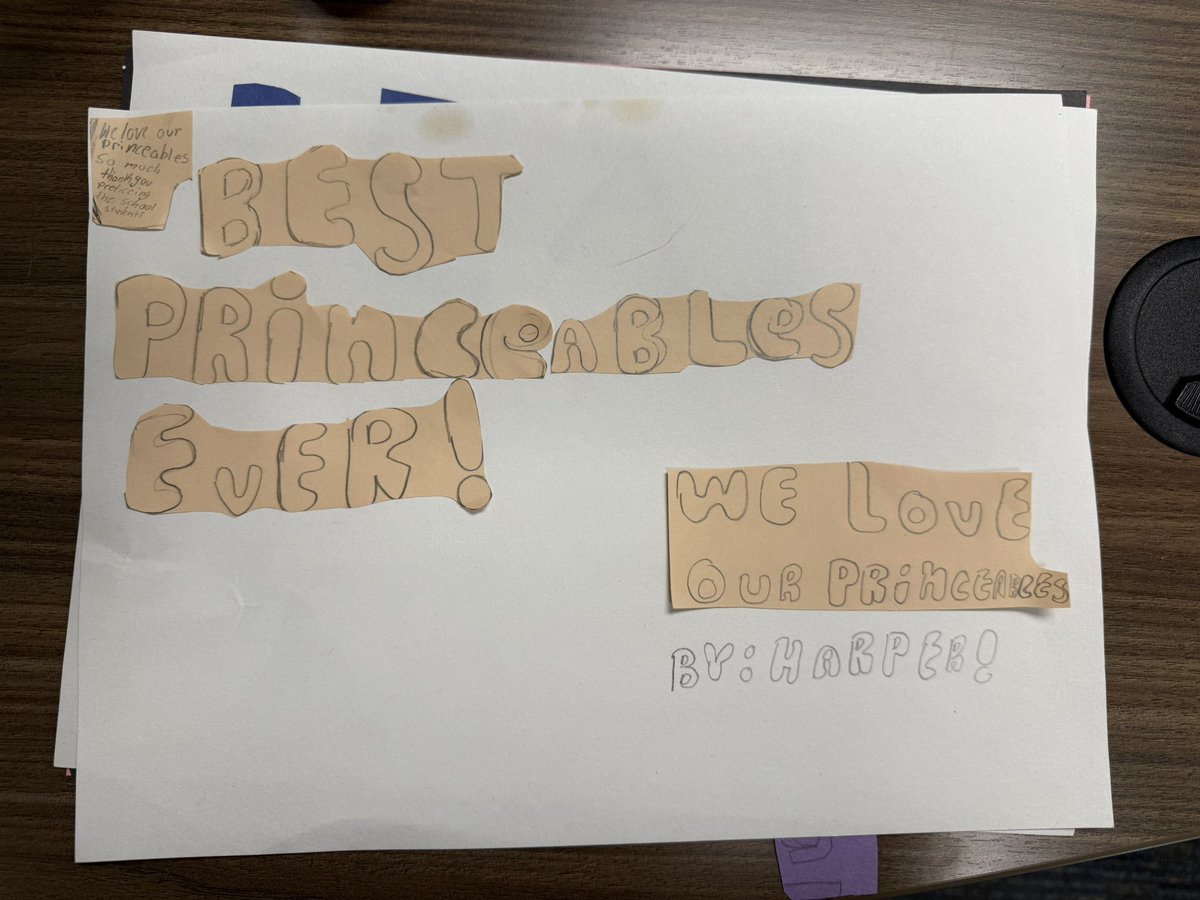 We love our
Princeables
So much
thankyou
Proticeing
the school
Students
BEST
PRiNCeABLeS
EvER!
WE LovE
OUR PRiNCEABLES
BY: HARPER!